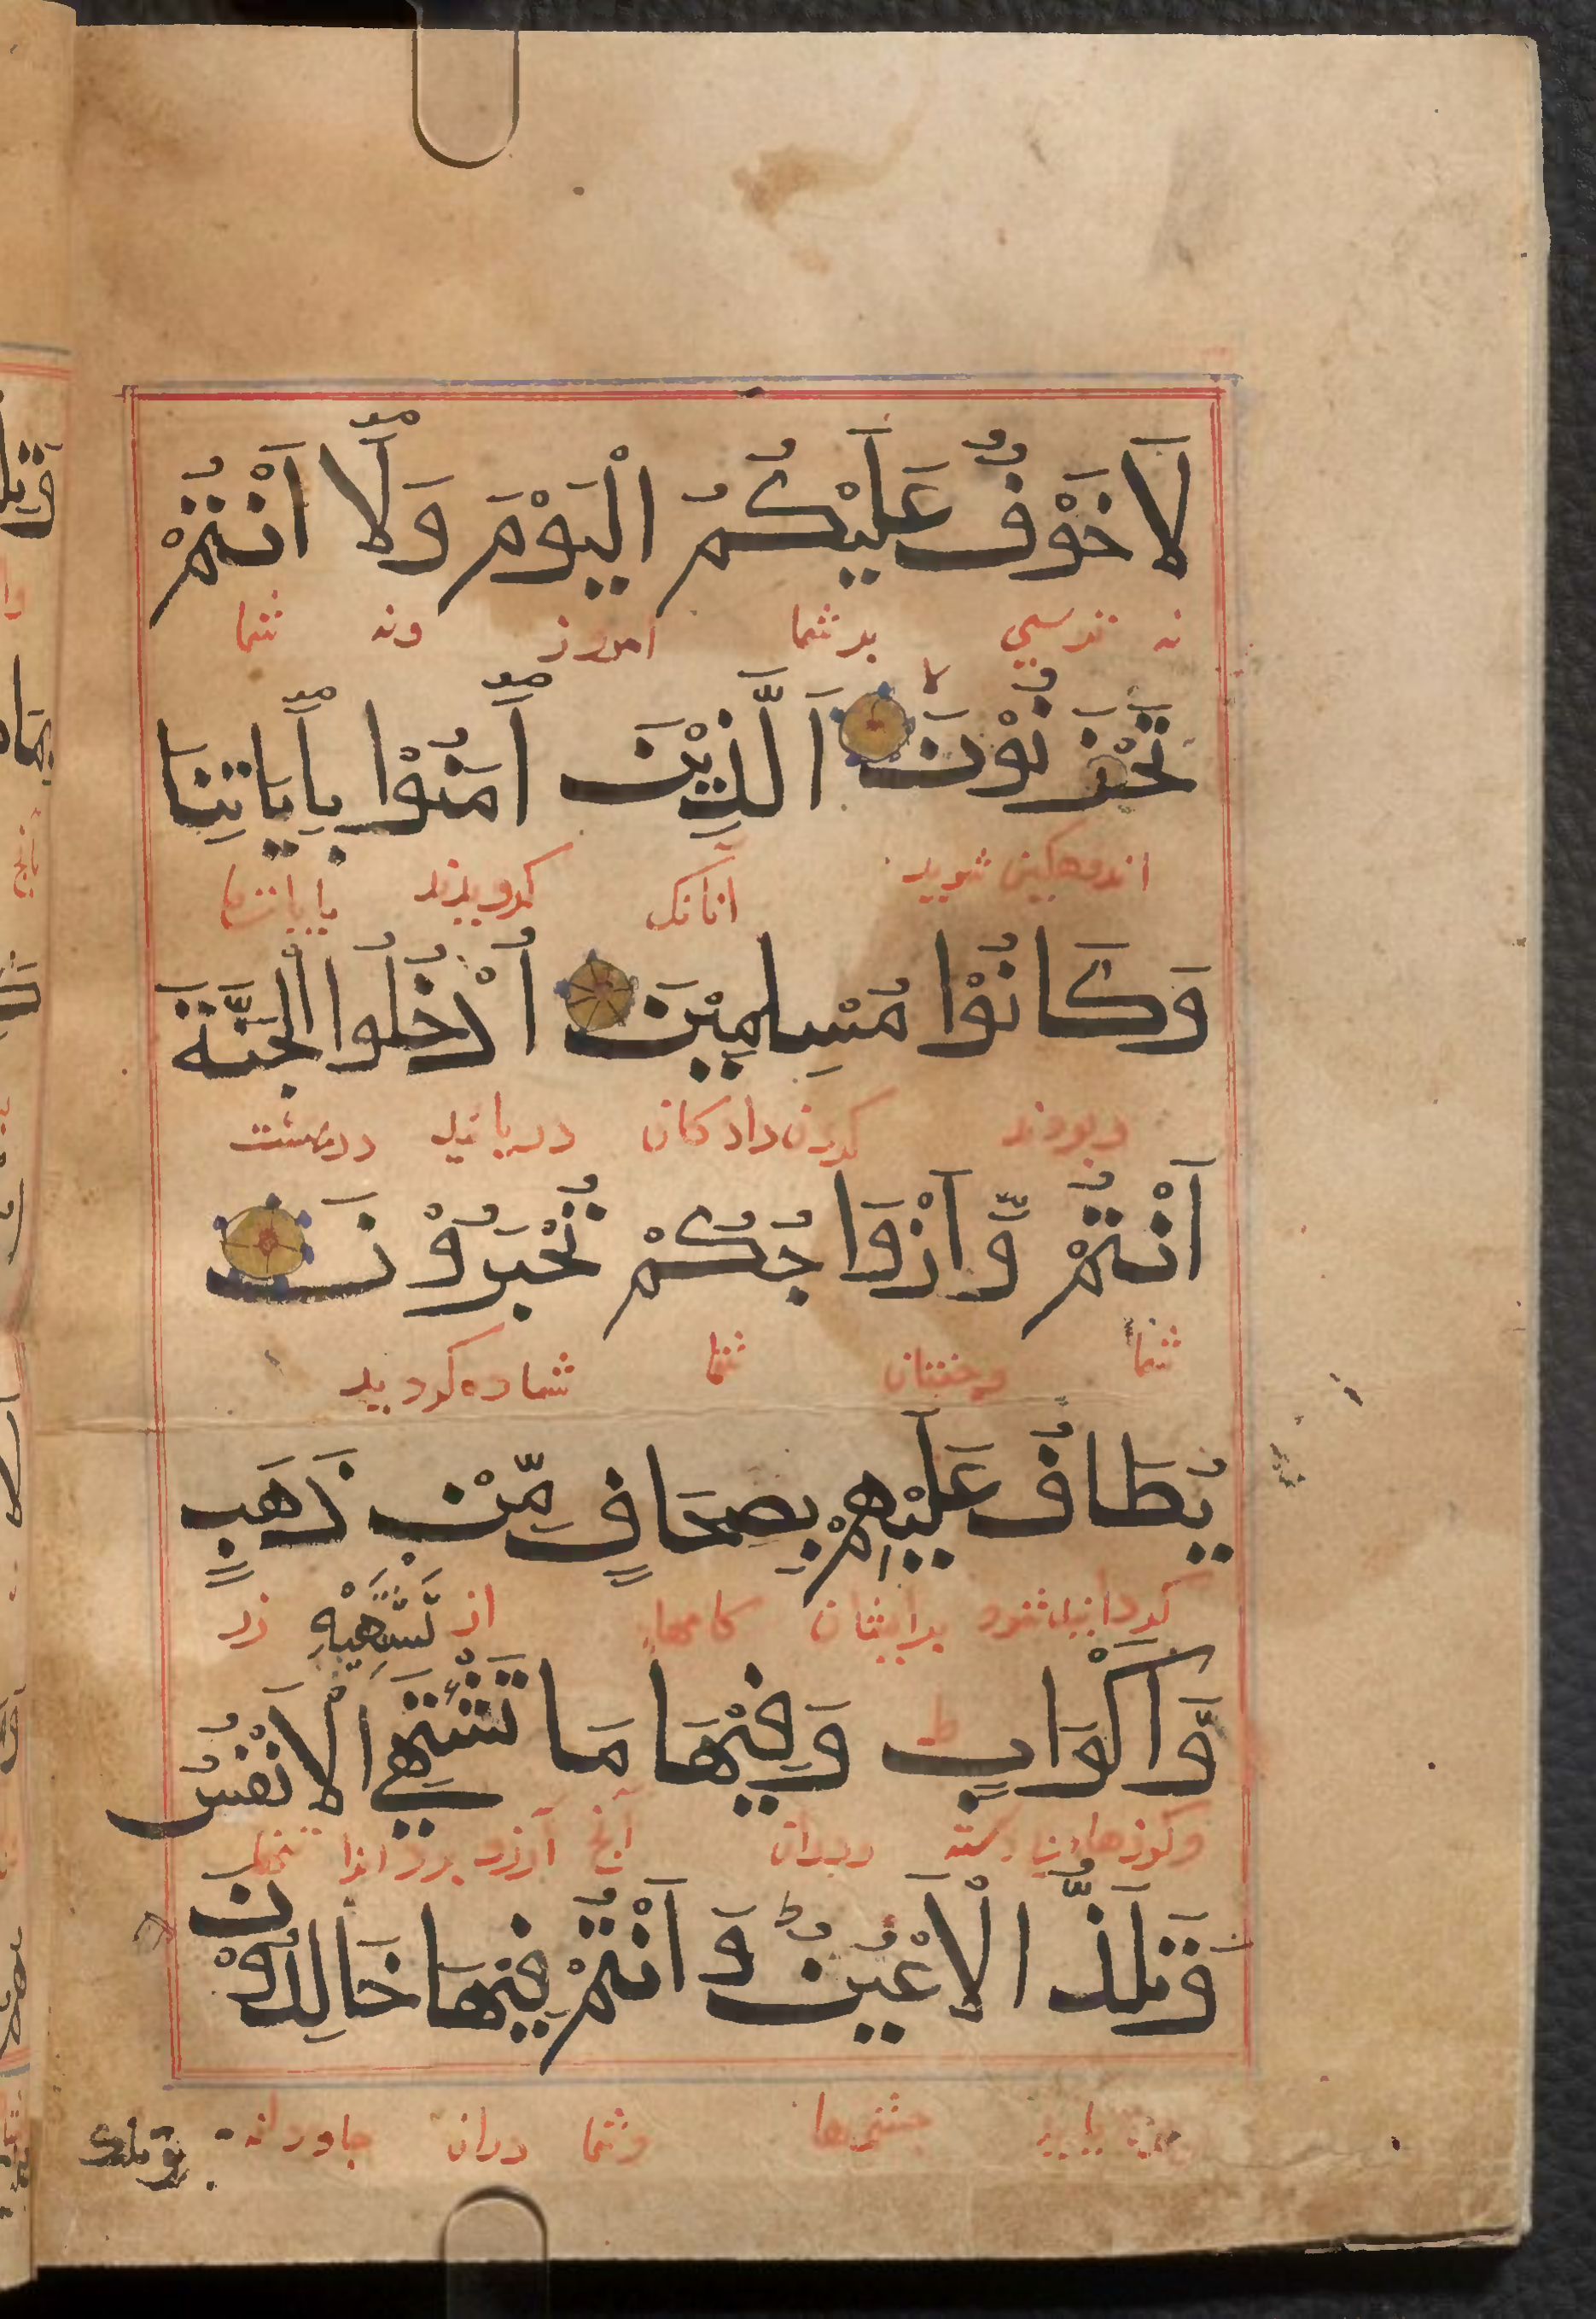 لَا خَوْفٌ عَلَيْكُمُ الْيَوْمَ وَلَآ اَنْتُمْ
نه ترسی بر شما امروز ونه شما
تَحْزَنُوْنَ اَلَّذِيْنَ آمَنُوْا بِآيَاتِنَا
اندوهکین شوید آنانک کرویدند بایاتها
وَكَانُوْا مُسْلِمِيْنَ اُدْخُلُوا الْجَنَّةَ
وبودند کردن دادکان دریایید در بهشت
اَنْتُمْ وَّاَزْوَاجُكُمْ تُحْبَرُوْنَ
شما وجفتان شما شاده کردید
يُطَافُ عَلَيْهِمْ بِصِحَافٍ مِّنْ ذَهَبٍ
کردانیده شود برایشان کاسها از زر
تَشْتَهِيْهِ
وَّاَكْوَابٍ ط وَفِيْهَا مَا تَشْتَهِي الْاَنْفُسُ
وکوزها دسته ودران آنچ آرزو برد انرا تنها
وَتَلَذُّ الْاَعْيُنُ وَاَنْتُمْ فِيْهَا خَالِدُوْنَ
چشمها وشما دران جاودانه
وتلك